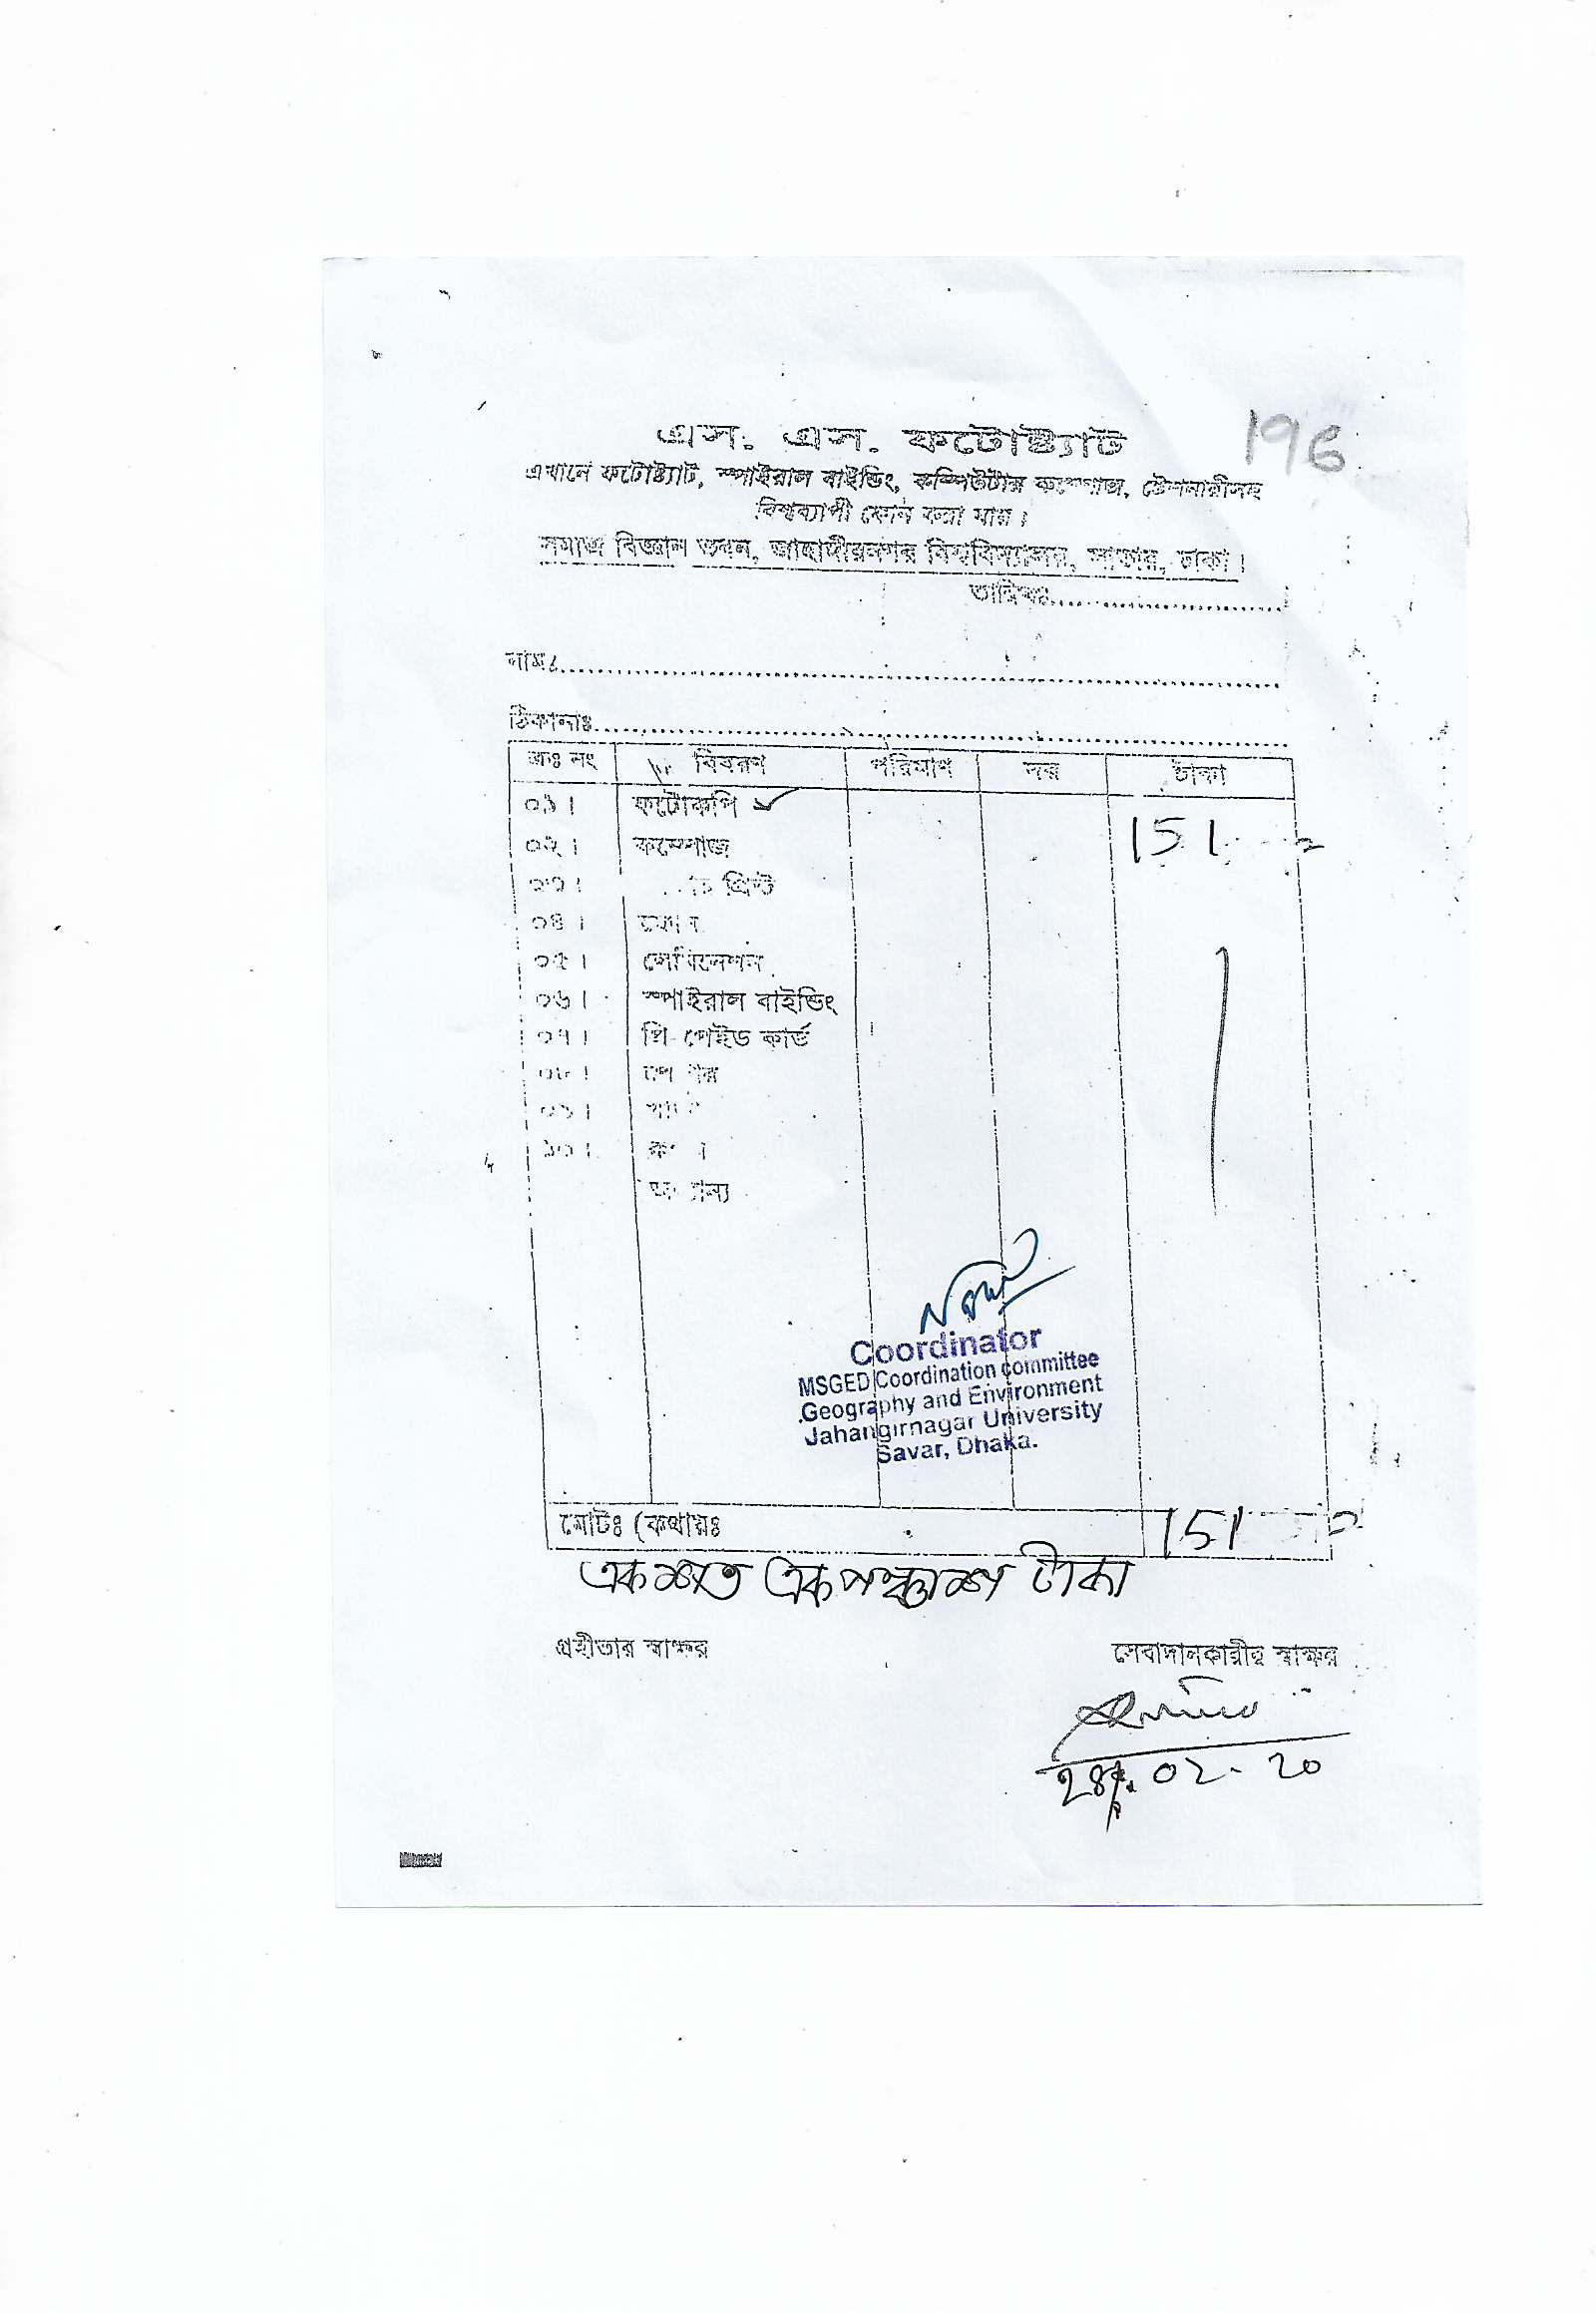 196
এস. এস. ফটোষ্ট্যাট
এখানে ফটোষ্ট্যাট, স্পাইরাল বাইন্ডিং, কম্পিউটার কম্পোজ, ষ্টেশনারীসহ
বিশ্বব্যাপী ফোন করা যায়।
সমাজ বিজ্ঞান ভবন, জাহাঙ্গীরনগর বিশ্ববিদ্যালয়, সাভার, ঢাকা।
তারিখঃ
নামঃ
ঠিকানাঃ
ক্রঃ নং বিবরণ পরিমাণ দর টাকা
০১। ফটোকপি ✓ 151
০২। কম্পোজ
০৩। প্রিন্ট
০৪। ফোন
০৫। লেমিনেশন
০৬। স্পাইরাল বাইন্ডিং
০৭। প্রি-পেইড কার্ড
০৮। পেপার
০৯।
১০।
অন্যান্য
Coordinator
MSGED Coordination committee
Geography and Environment
Jahangirnagar University
Savar, Dhaka.
মোটঃ (কথায়ঃ 151
একশত একপঞ্চাশ টাকা
গ্রহীতার স্বাক্ষর সেবাদানকারীর স্বাক্ষর
02-20